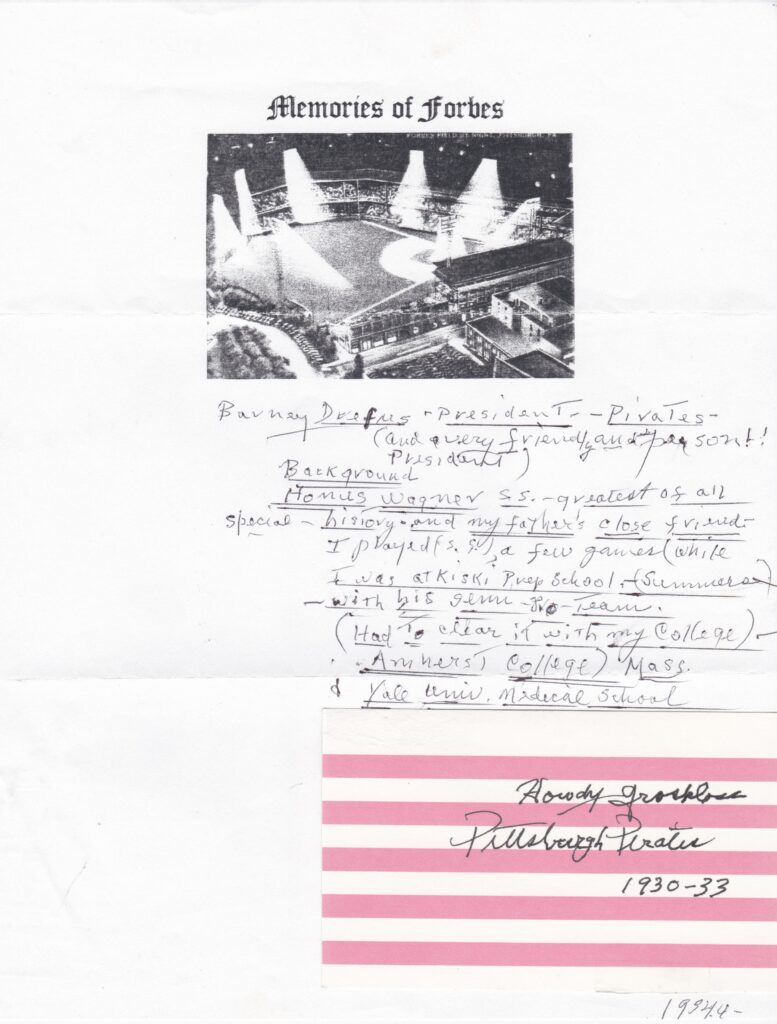 Memories of Forbes
FORBES FIELD AT NIGHT, PITTSBURGH, PA.
Barney Drefus - President - Pirates -
(and a very friendly and
President)
Background
Honus Wagner S.S. - greatest of all
special - history - and my father's close friend -
I played (s.s.), a few games (while
I was at Kiski Prep School - (Summers)
- with his semi-pro-Team.
(Had To clear it with my College) -
Amherst College) Mass.
& Yale Univ. Medical School
Howdy Groskloss
Pittsburgh Pirates
1930-33